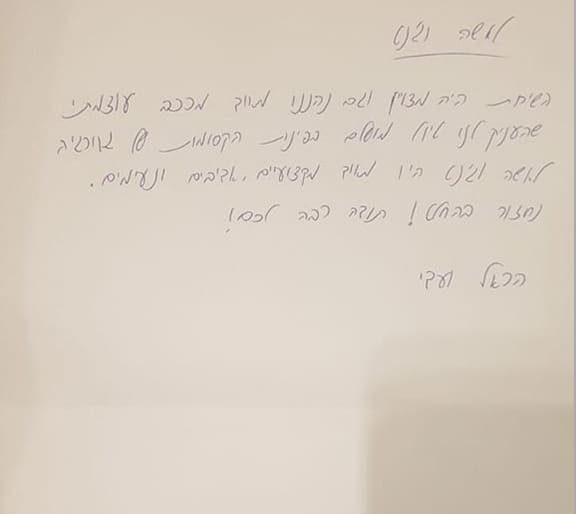 לאשה וג'נט
השירות היה מצוין וגם נהננו מאוד מרכב עוצמתי
שהעניק לנו טיול מושלם בפינות הקסומות של גאורגיה
לאשה וג'נט היו מאוד מקצועיים, אדיבים ונעימים.
נחזור בהחלט! תודה רבה לכם!
הראל ועדי